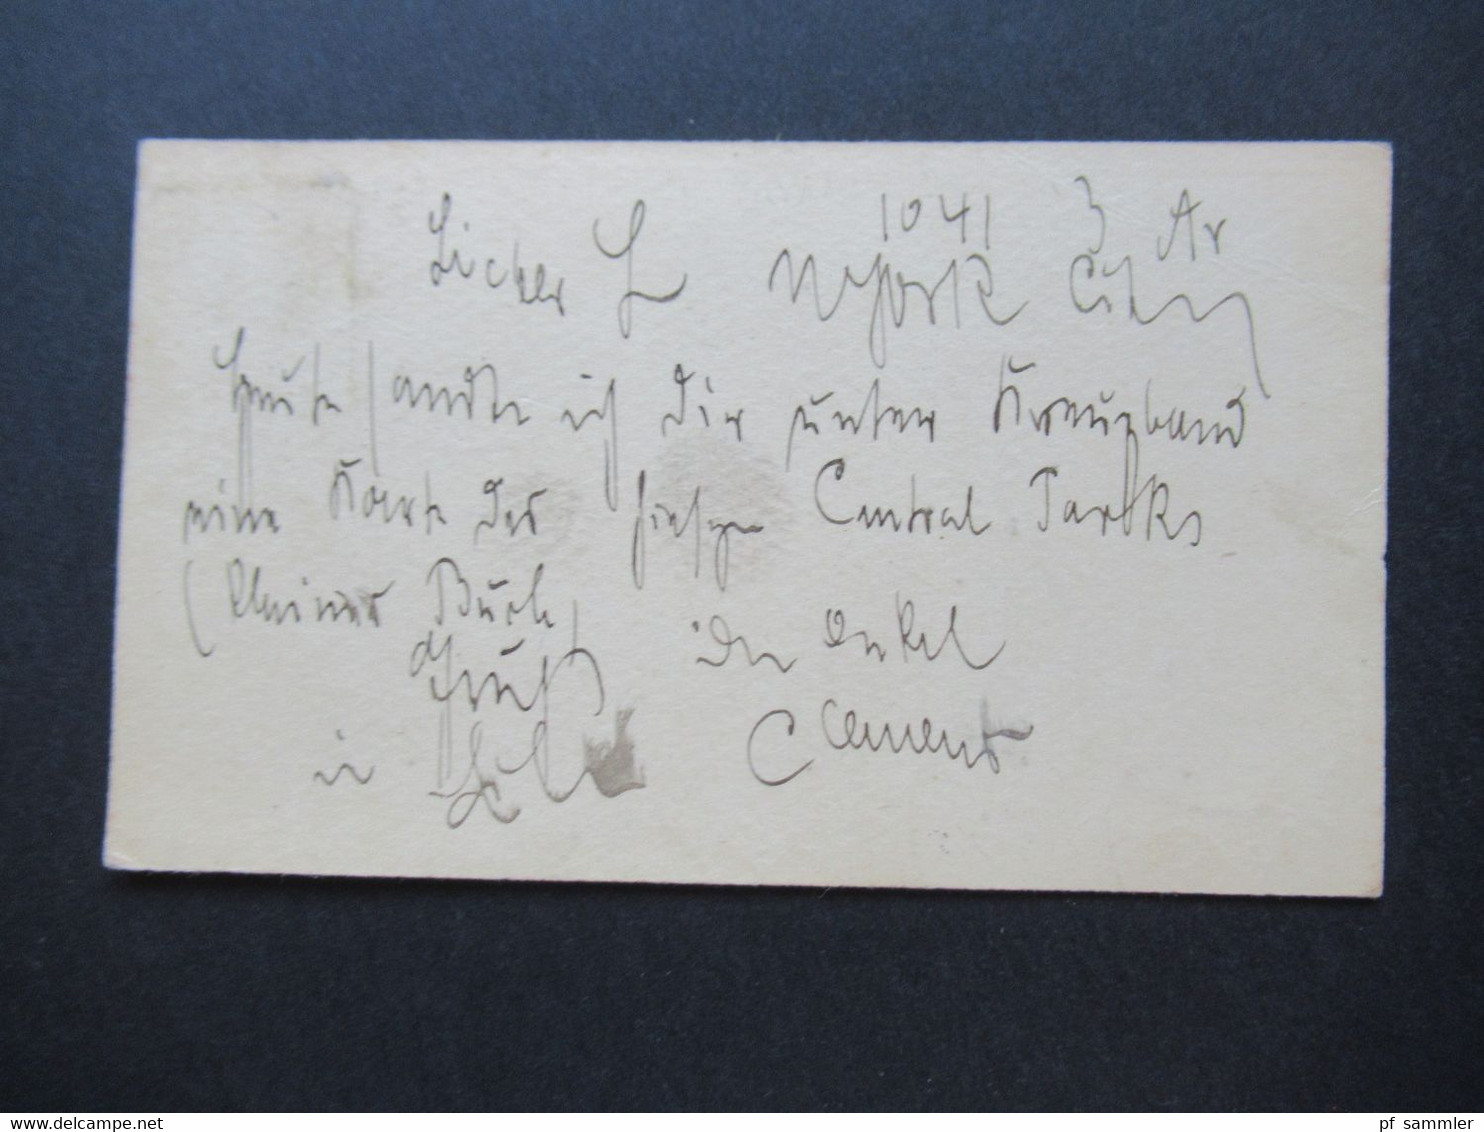 1041 3 Av
Lieber L NYork City
Heute sandte ich Dir unter Kreuzband
eine Karte des hiesigen Central Parks
(kleines Buch)
Gruß Dein Onkel
in Clemens
www.delcampe.net
pf_sammler